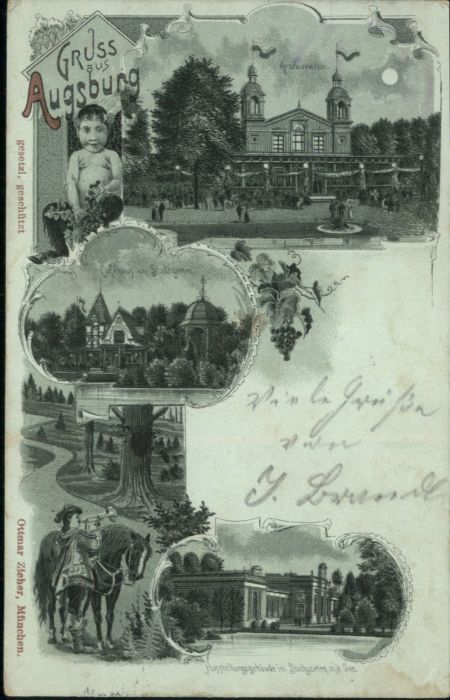 Gruss
aus
Augsburg
Restauration.
gesetzl. geschützt
im Stadtgarten
Viele Grüße
von
J. Brandt
Ottmar Zieher, München.
Ausstellungsgebäude im Stadtgarten mit See